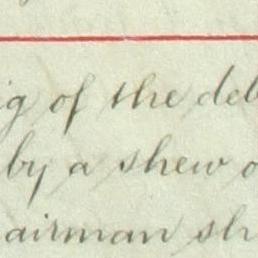 ig of the deb
by a shew o
airman sh